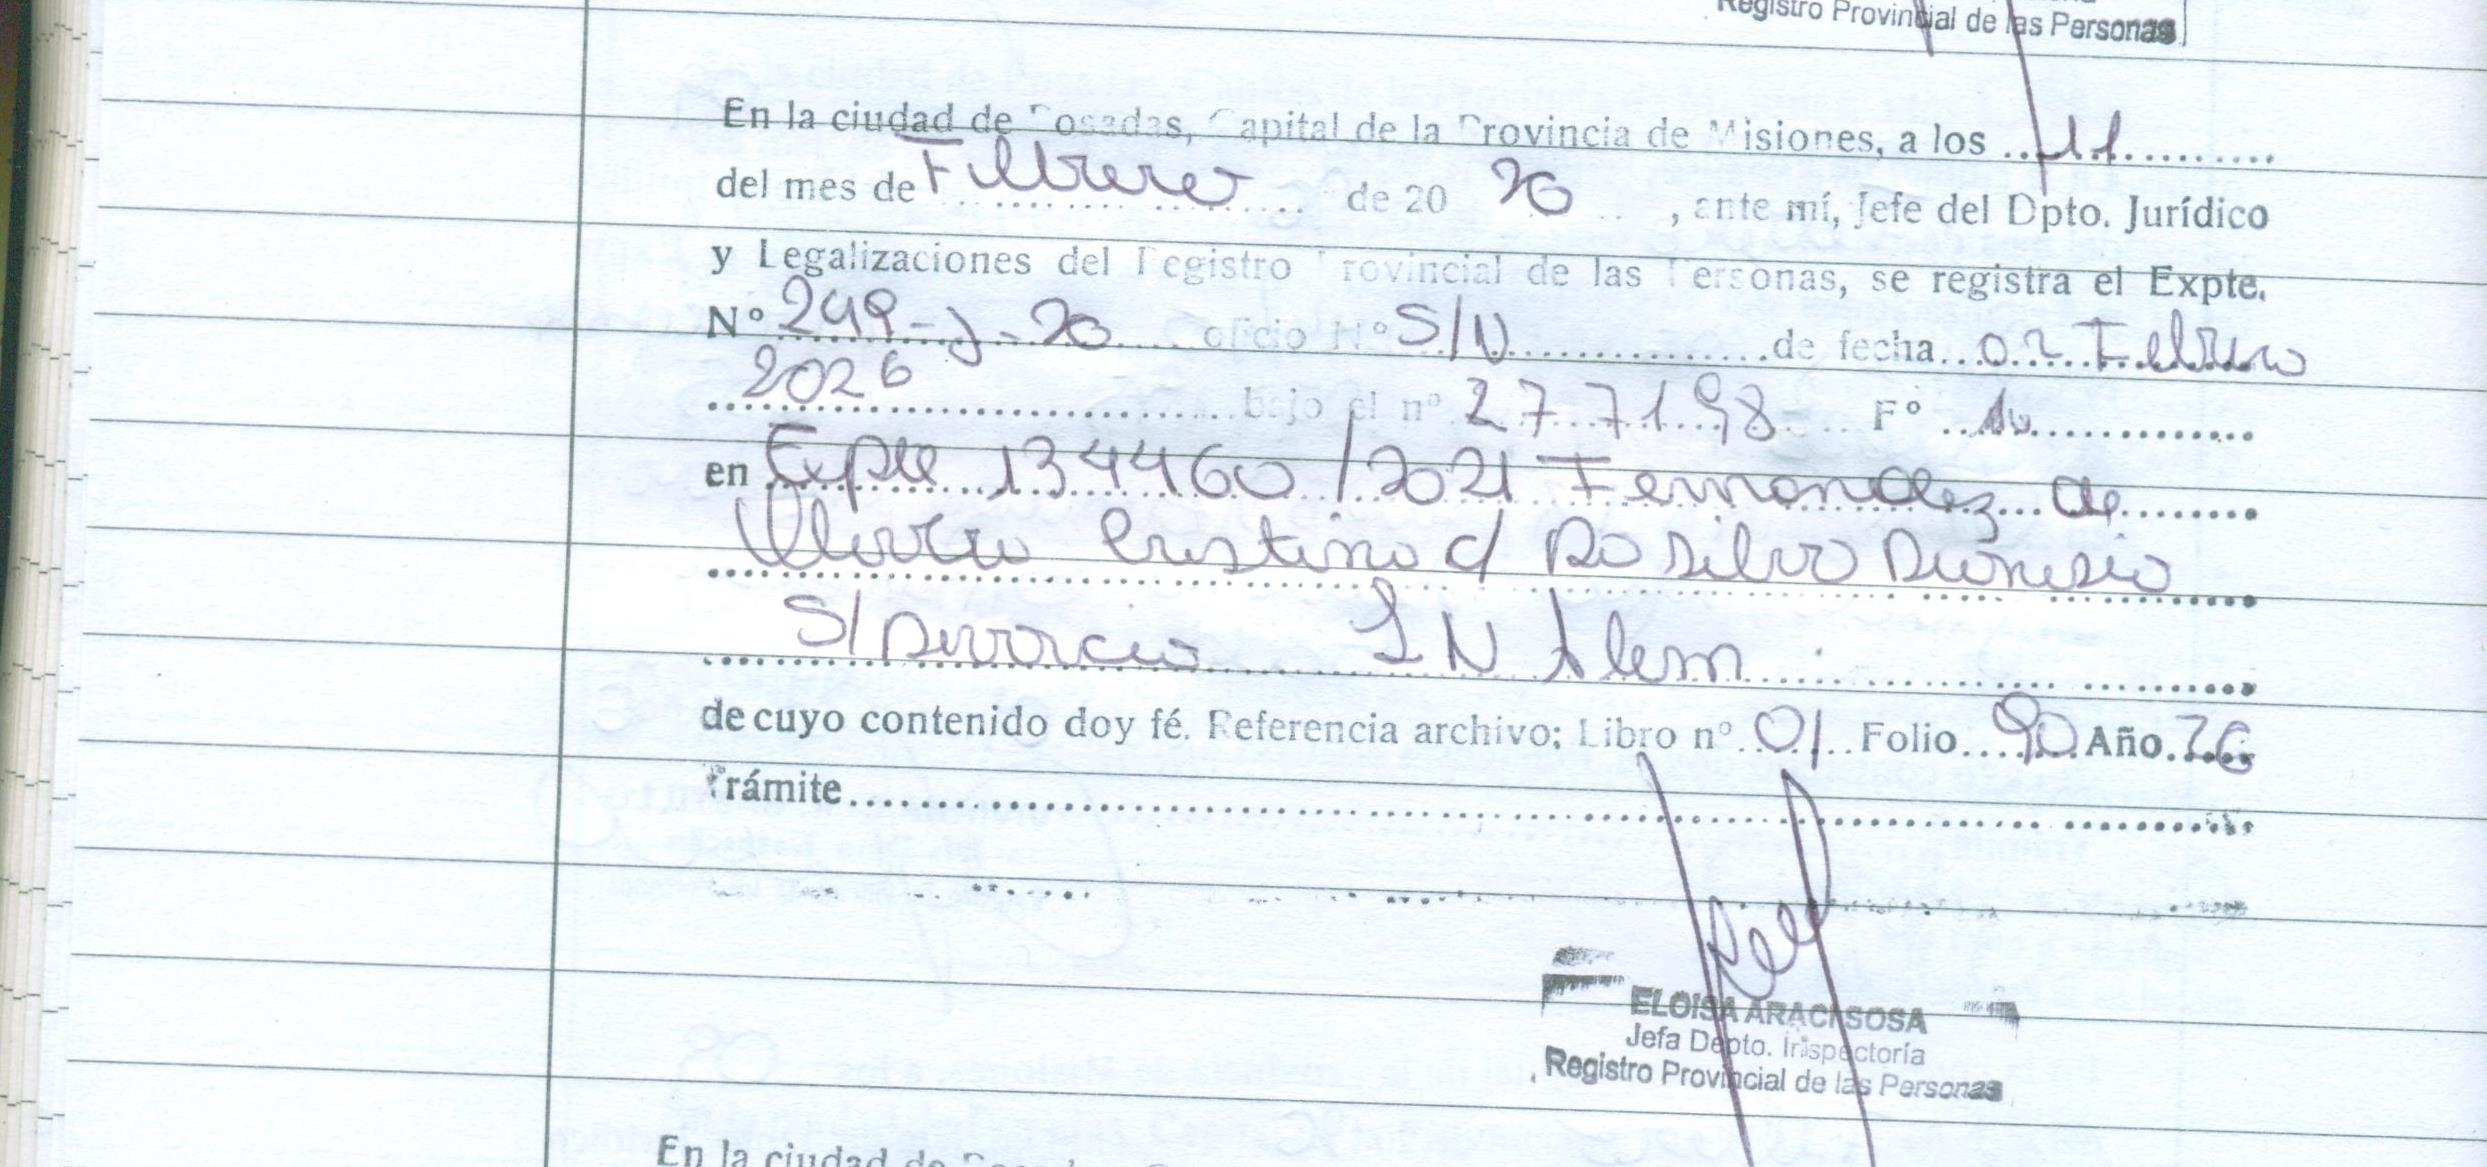 Registro Provincial de las Personas
En la ciudad de Posadas, Capital de la Provincia de Misiones, a los 11
del mes de Febrero de 20 26, ante mí, Jefe del Dpto. Jurídico
y Legalizaciones del Registro Provincial de las Personas, se registra el Expte.
Nº 249-J-26 oficio Nº S/N de fecha 02 Febrero
2026 bajo el nº 277198 Fº
en Expte 134460/2021 Fernandez de
Olivera Cristina c/ Da Silva Dionisio
S/ Divorcio L N Alem
de cuyo contenido doy fé. Referencia archivo; Libro nº 01 Folio 90 Año 26
Trámite
ELOISA ARACI SOSA
Jefa Depto. Inspectoría
Registro Provincial de las Personas
En la ciudad de